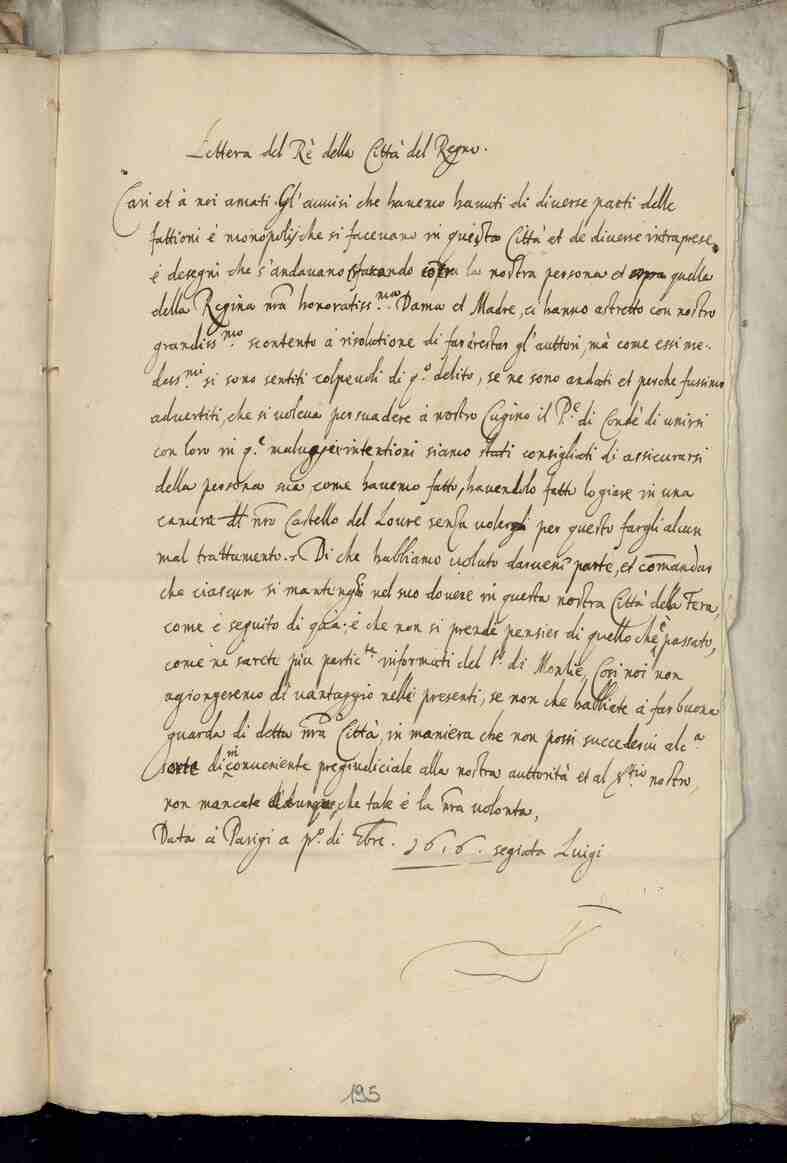 Lettera del Rè della Città del Regno.
Cari et à noi amati. Gl'auuisi che hauemo hauuti di diuerse parti delle
fattioni è monopolij che si faceuano in questa Città et de diuerse intraprese
è desegni che s'andauano facendo sopra la nostra persona et sopra quella
della Regina nrã honoratiss.ma Dama et Madre, ci hanno astretto con nostro
grandiss.mo scontento à risolutione di far arrestar gl'auttori, mà come essi me-
dess.mi si sono sentiti colpeuoli di q.o delito, se ne sono andati et perche fussimo
aduertiti, che si voleua persuadere à nostro Cugino il P.e di Condè di unirsi
con loro in q.e maluaggie intentioni siamo stati consigliati di assicurarsi
della persona sua come hauemo fatto, hauendolo fatto logiare in una
camera dl nrõ Castello del Loure senza volergli per questo fargli alcun
mal trattamento. Di che habbiamo voluto daruene parte, et comandar
che ciascun si mantenghi nel suo douere in questa nostra Città della Fera,
come è seguito di già; è che non si prende pensier di quello che è passato,
come ne sarete più partic.te informati del S.r di Monlie, Cosi noi non
agiongeremo di vantaggio nelli presenti, se non che habbiate à far buona
guarda di detta nrã Città, in maniera che non possi succederui alc.a
sorte di inconueniente pregiudiciale alla nostra auttorità et al S.tio nostro,
non mancate dunque, che tale è la nrã volonta,
Data à Parigi a p.o di 7bre. 1616. segnata Luigi
195